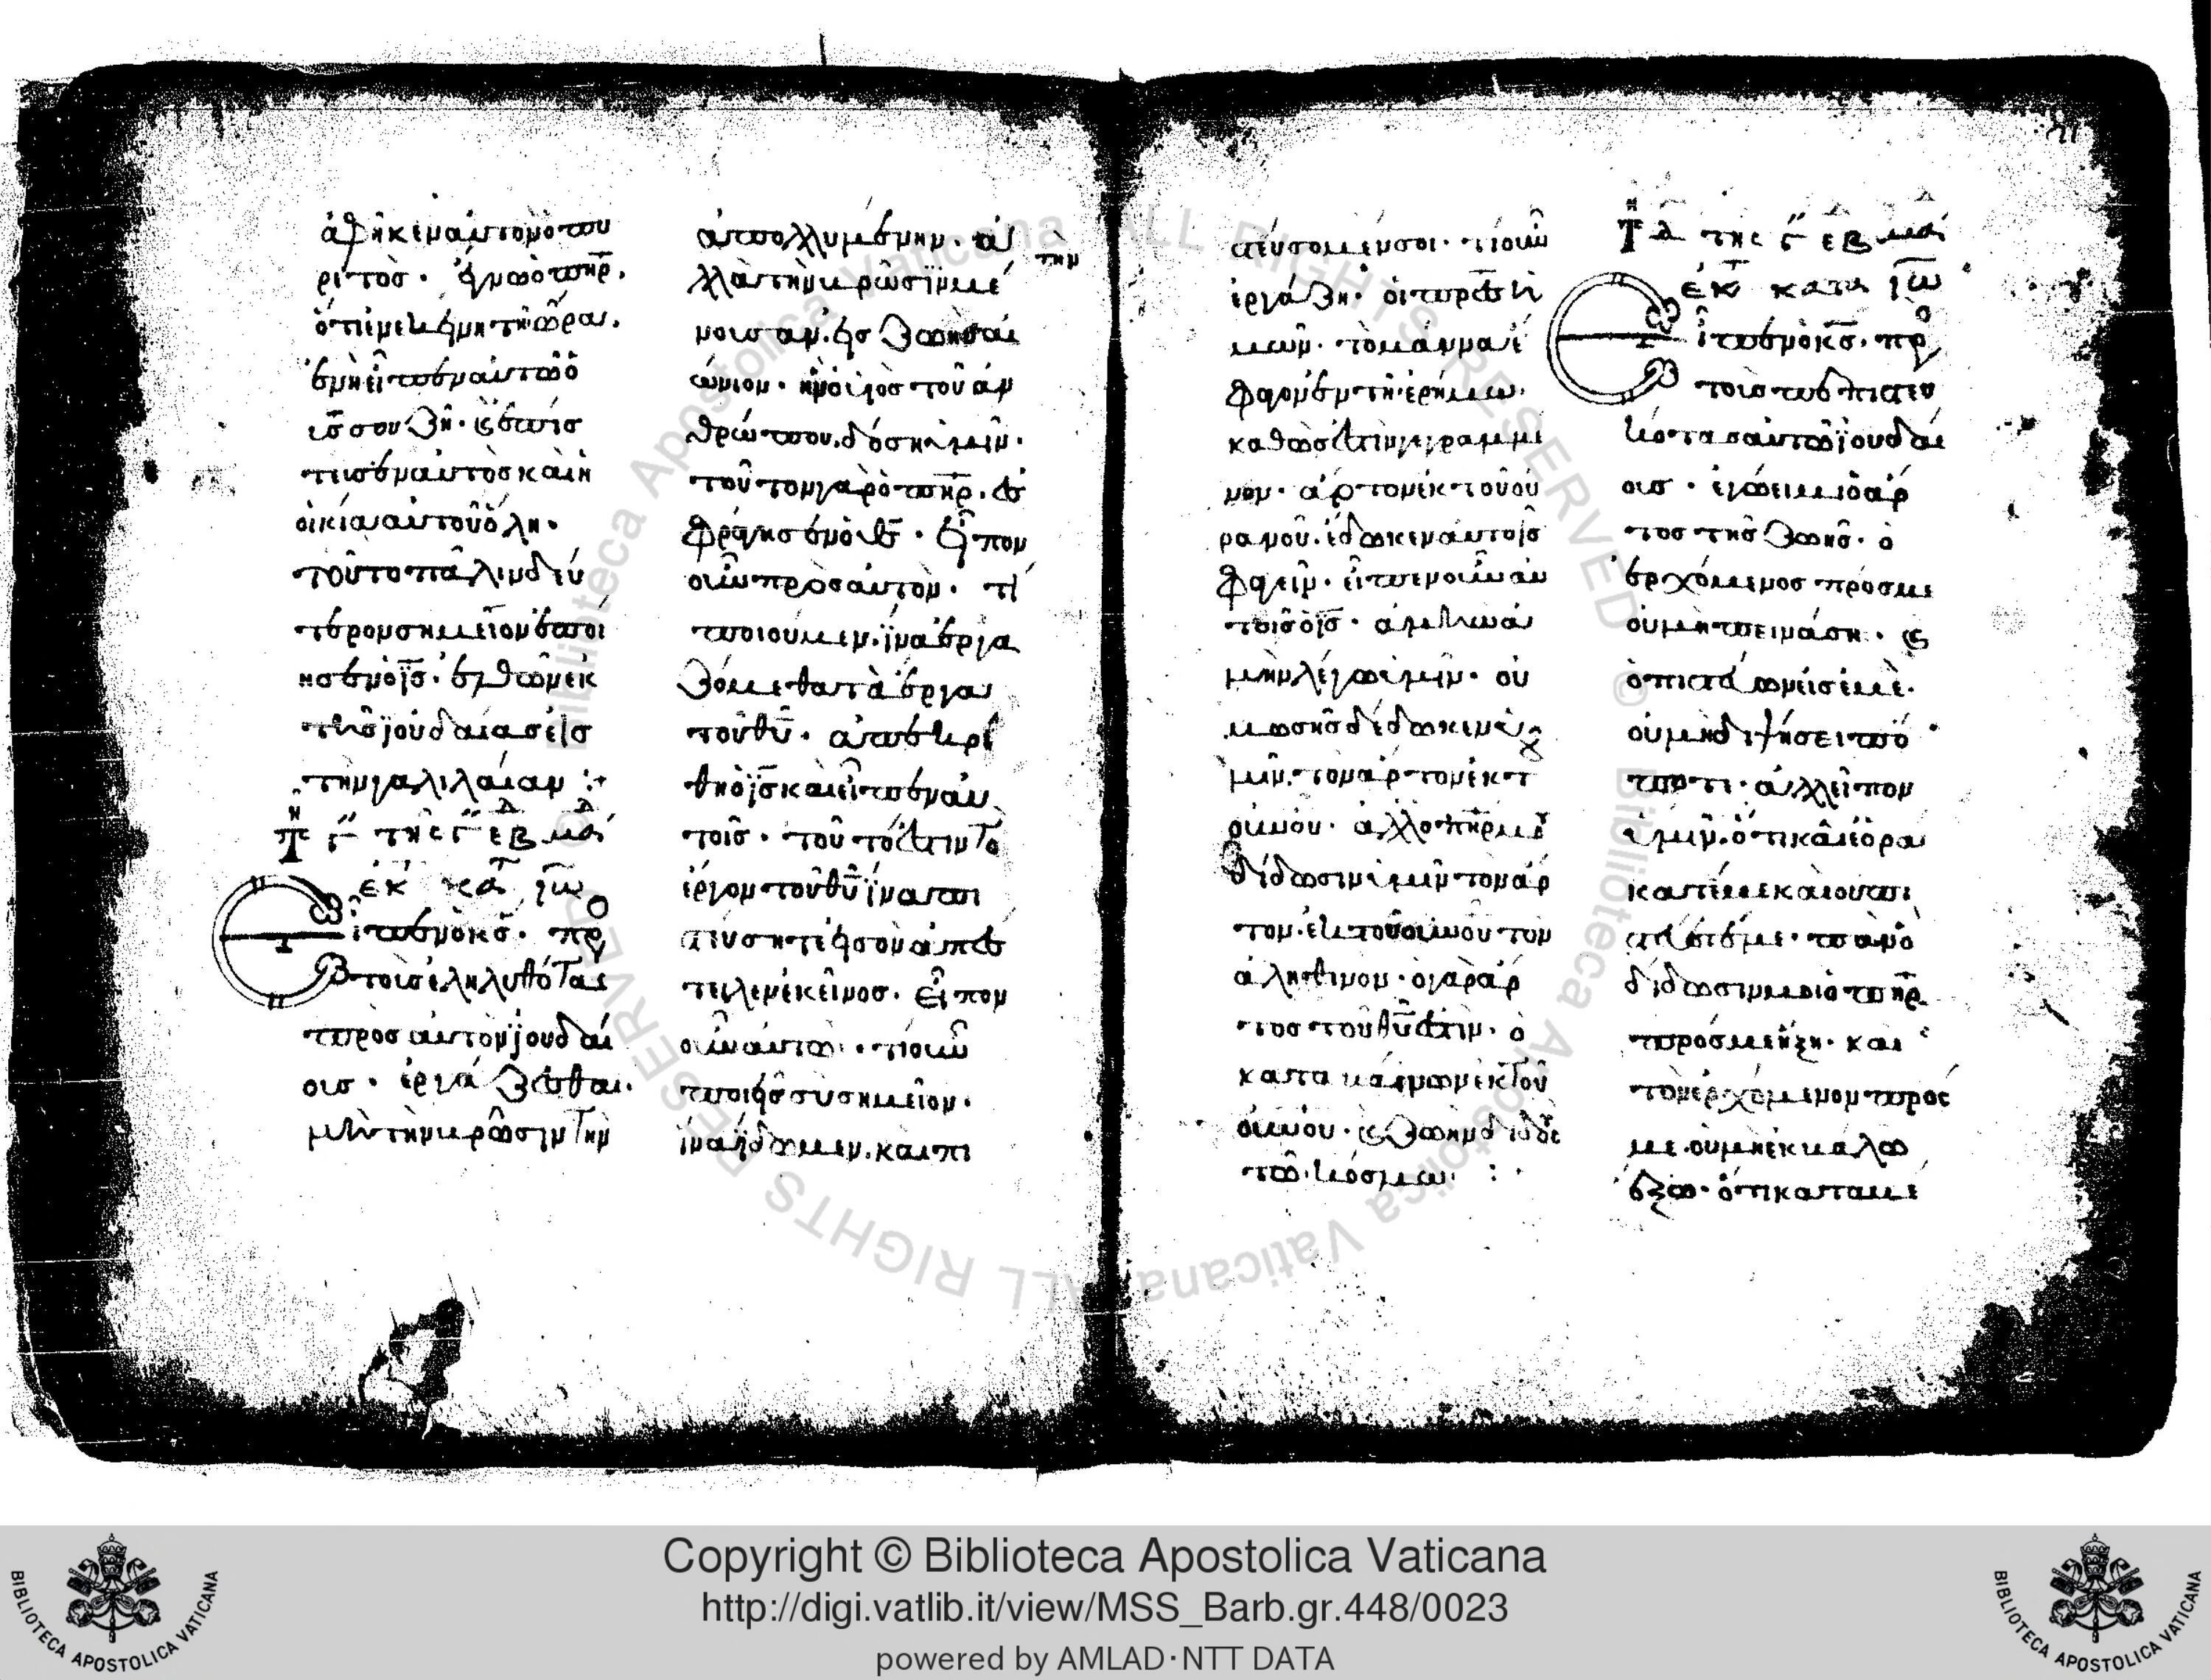 ἀφῆκεν αὐτὸν ὁ πυ
ρετός. ἔγνω ὁ πηρ.
ὅτι ἐν ἐκείνη τῆ ὥρα.
ἐν ἧ εἶπεν αὐτῶ ὁ
ις σου ζῆ. ἐπίσ
τευσεν αὐτὸς καὶ ἡ
οἰκία αὐτοῦ ὅλη.
τοῦτο πάλιν δεύ
τερον σημεῖον ἐποί
ησεν ὁ ις. ἐλθὼν ἐκ
τῆς ἰουδαίας εἰς
τὴν γαλιλαίαν :+
τῆς εβ
ἐκ κα ιω
Εἶπεν ὁ κς. πρ
τοὺς ἐληλυθότας
πρὸς αὐτὸν ἰουδαί
ους. ἐργάζεσθαι.
μὴ τὴν βρῶσιν τὴν
ἀπολλυμένην. ἀλ
λὰ τὴν βρῶσιν τὴν μέ
νουσαν. εἰς ζωὴν αἰ
ώνιον. ἣν ὁ υἱὸς τοῦ ἀν
θρώπου. δώσει ὑμῖν.
τοῦτον γὰρ ὁ πηρ. ἐσ
φράγησεν ὁ θς. εἶπον
οὖν πρὸς αὐτόν. τί
ποιοῦμεν. ἵνα ἐργα
ζόμεθα τὰ ἔργα
τοῦ θυ. ἀπεκρί
θη ὁ ις καὶ εἶπεν αὐ
τοῖς. τοῦτό ἐστιν τὸ
ἔργον τοῦ θυ ἵνα πι
στεύσητε εἰς ὃν ἀπέσ
τειλεν ἐκεῖνος. εἶπον
οὖν αὐτῶ. τί οὖν
ποιεῖς σὺ σημεῖον.
ἵνα ἴδωμεν. καὶ πι
στεύσομέν σοι. τί οὖν
ἐργάζη. οἱ πρες ἡ
μῶν. τὸ μάννα ἔ
φαγον ἐν τῆ ἐρήμω.
καθώς ἐστιν γεγραμμέ
νον. ἄρτον ἐκ τοῦ οὐ
ρανοῦ. ἔδωκεν αὐτοῖς
φαγεῖν. εἶπεν οὖν αὐ
τοῖς ὁ ις. ἀμὴν ἀ
μὴν λέγω ὑμῖν. οὐ
μωσῆς δέδωκεν ὑ
μῖν. τὸν ἄρτον ἐκ τ
οὐνου. ἀλλ' ὁ πηρ μου
δίδωσιν ὑμῖν τὸν ἄρ
τον. ἐκ τοῦ οὐνου τὸν
ἀληθινόν. ὁ γὰρ ἄρ
τος τοῦ θυ ἐστιν. ὁ
καταβαίνων ἐκ τοῦ
οὐνου. καὶ ζωὴν διδοὺς
τῶ κόσμω. :
τῆς εβ
ἐκ κατα ιω
Εἶπεν ὁ κς. πρ
τοὺς πεπιστευ
κότας αὐτῶ ἰουδαί
ους. ἐγώ εἰμι ὁ ἄρ
τος τῆς ζωῆς. ὁ
ἐρχόμενος πρός με
οὐ μὴ πεινάση. καὶ
ὁ πιστεύων εἰς ἐμὲ.
οὐ μὴ διψήσει πώ
ποτε. ἀλλ' εἶπον
ὑμῖν. ὅτι καὶ ἑωρά
κατέ με καὶ οὐ πι
στεύετέ με. πᾶν ὃ
δίδωσίν μοι ὁ πηρ
πρός με ἥξη. καὶ
τὸν ἐρχόμενον πρός
με. οὐ μὴ ἐκβάλω
ἔξω. ὅτι καταβέ
Copyright © Biblioteca Apostolica Vaticana
http://digi.vatlib.it/view/MSS_Barb.gr.448/0023
powered by AMLAD·NTT DATA
BIBLIOTECA APOSTOLICA VATICANA
BIBLIOTECA APOSTOLICA VATICANA